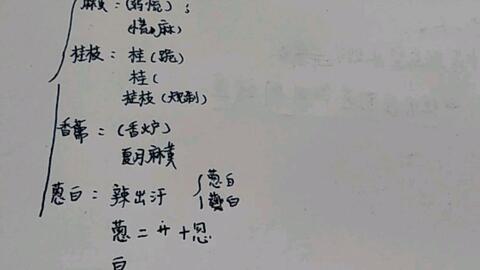 麻黄：(弱慌)；
(惜麻)
桂枝：桂(跪)
桂(
桂枝(规制)
香薷：(香火炉)
夏月麻黄
葱白：辣出汗 葱白
白
葱＝艹＋忽
白